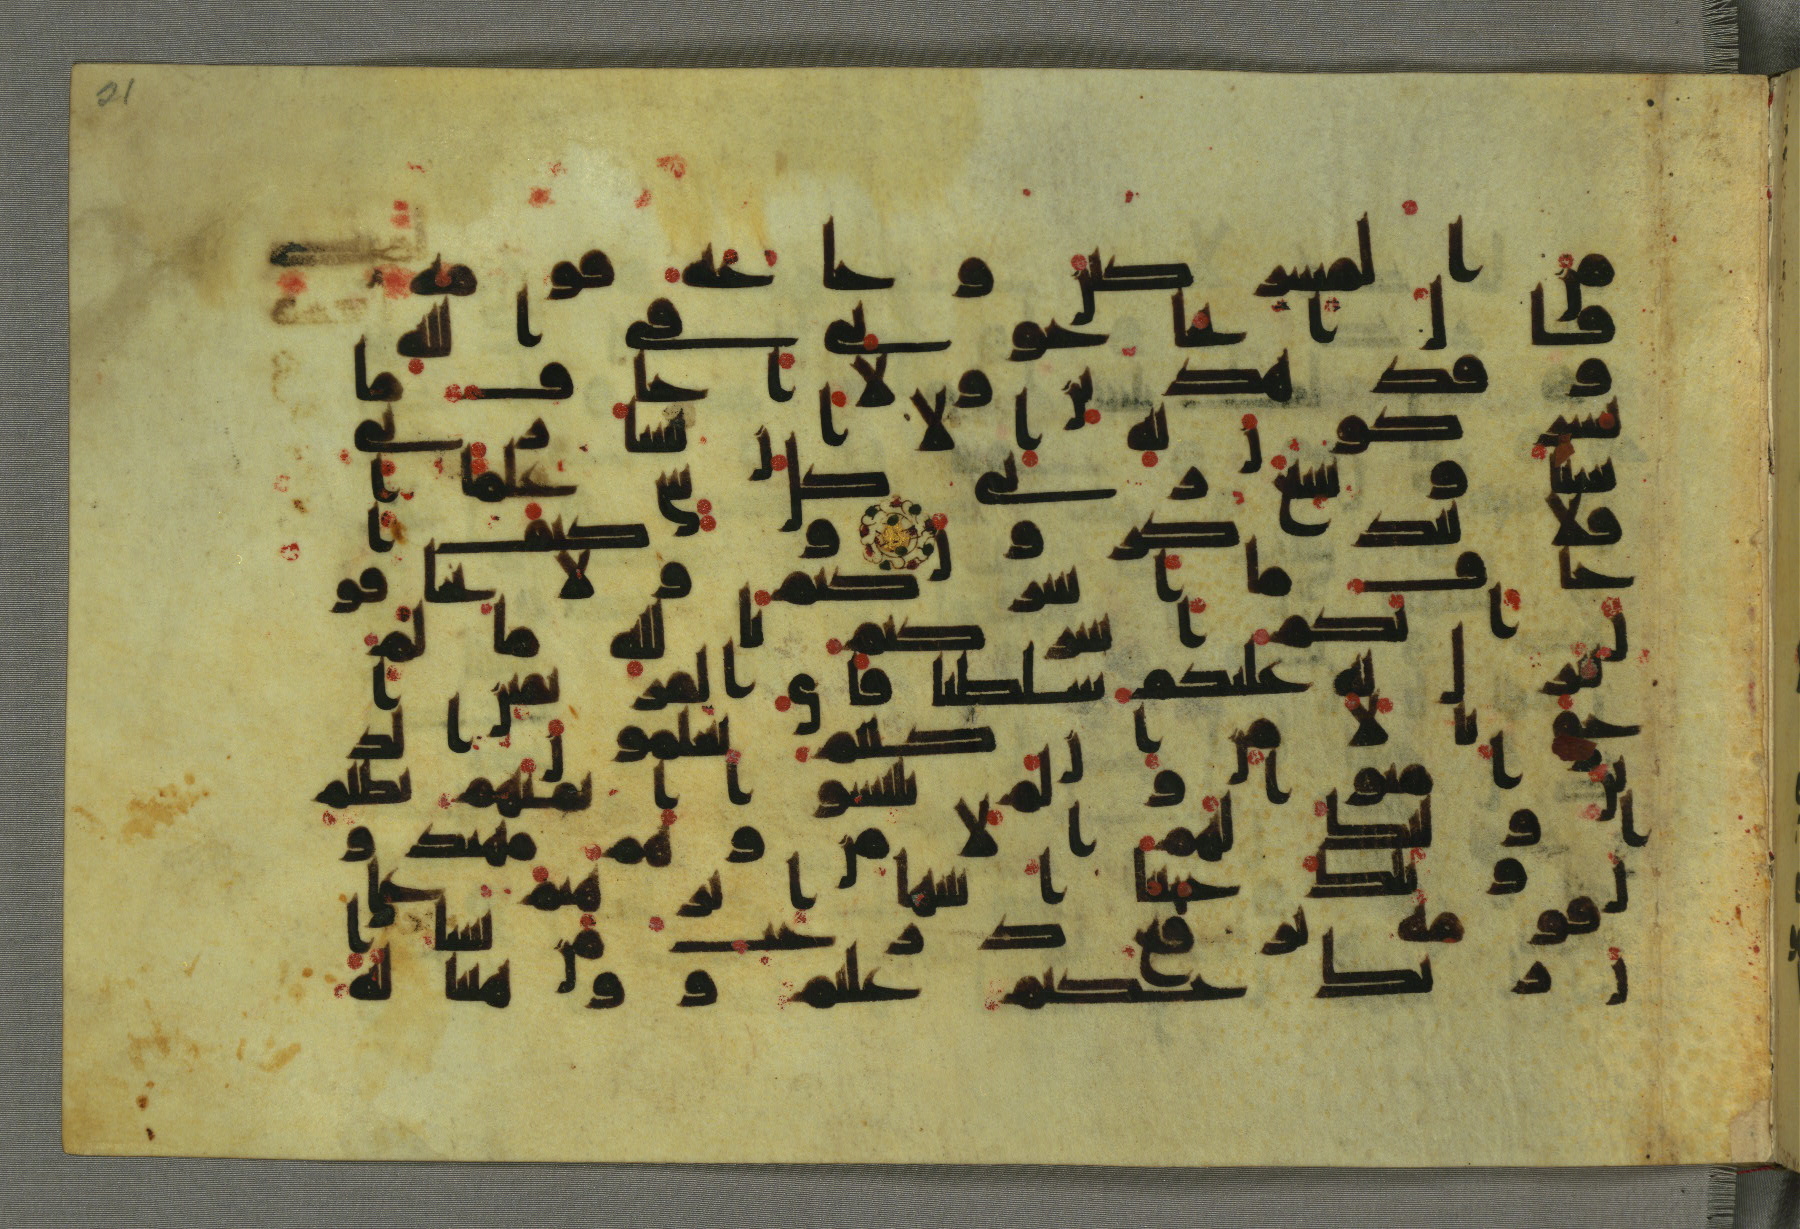 21
من المشركين وحاجه قومه
قال اتحجوني في الله
وقد هدين ولا اخاف ما
تشركون به الا ان يشا ربي
شيا وسع ربي كل شي علما ا
فلا تتذكرون وكيف ا
خاف ما اشركتم ولا تخافو
ن انكم اشركتم بالله ما لم
ينزل به عليكم سلطنا فاي الفريقين ا
حق بالامن ان كنتم تعلمون الذ
ين امنوا ولم يلبسوا ايمنهم بظلم
اولئك لهم الامن وهم مهتدو
ن وتلك حجتنا اتينها ابرهيم على
قومه نرفع درجت من نشا ا
ن ربك حكيم عليم ووهبنا له